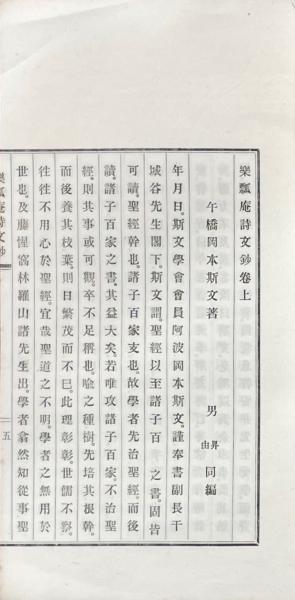 樂瓢庵詩文鈔卷上
午橋岡本斯文著
男
昇
由
同編
年月日。斯文學會會員阿波岡本斯文。謹奉書副長干
城谷先生閣下。斯文謂。聖經以至諸子百之書。固皆
可讀。聖經幹也。諸子百家支也。故學者先治聖經。而後
讀諸子百家之書。其益大矣。若唯攻諸子百家。不治聖
經。則其事或可觀。卒不足稱也。喩之種樹。先培其根幹。
而後養其枝葉。則日繁茂而不已。此理彰彰。世儒不察。
往往不用心於聖經。宜哉聖道之不明。學者之無用於
世也。及藤惺窩林羅山諸先生出。學者翕然知從事聖
樂瓢庵詩文鈔
五